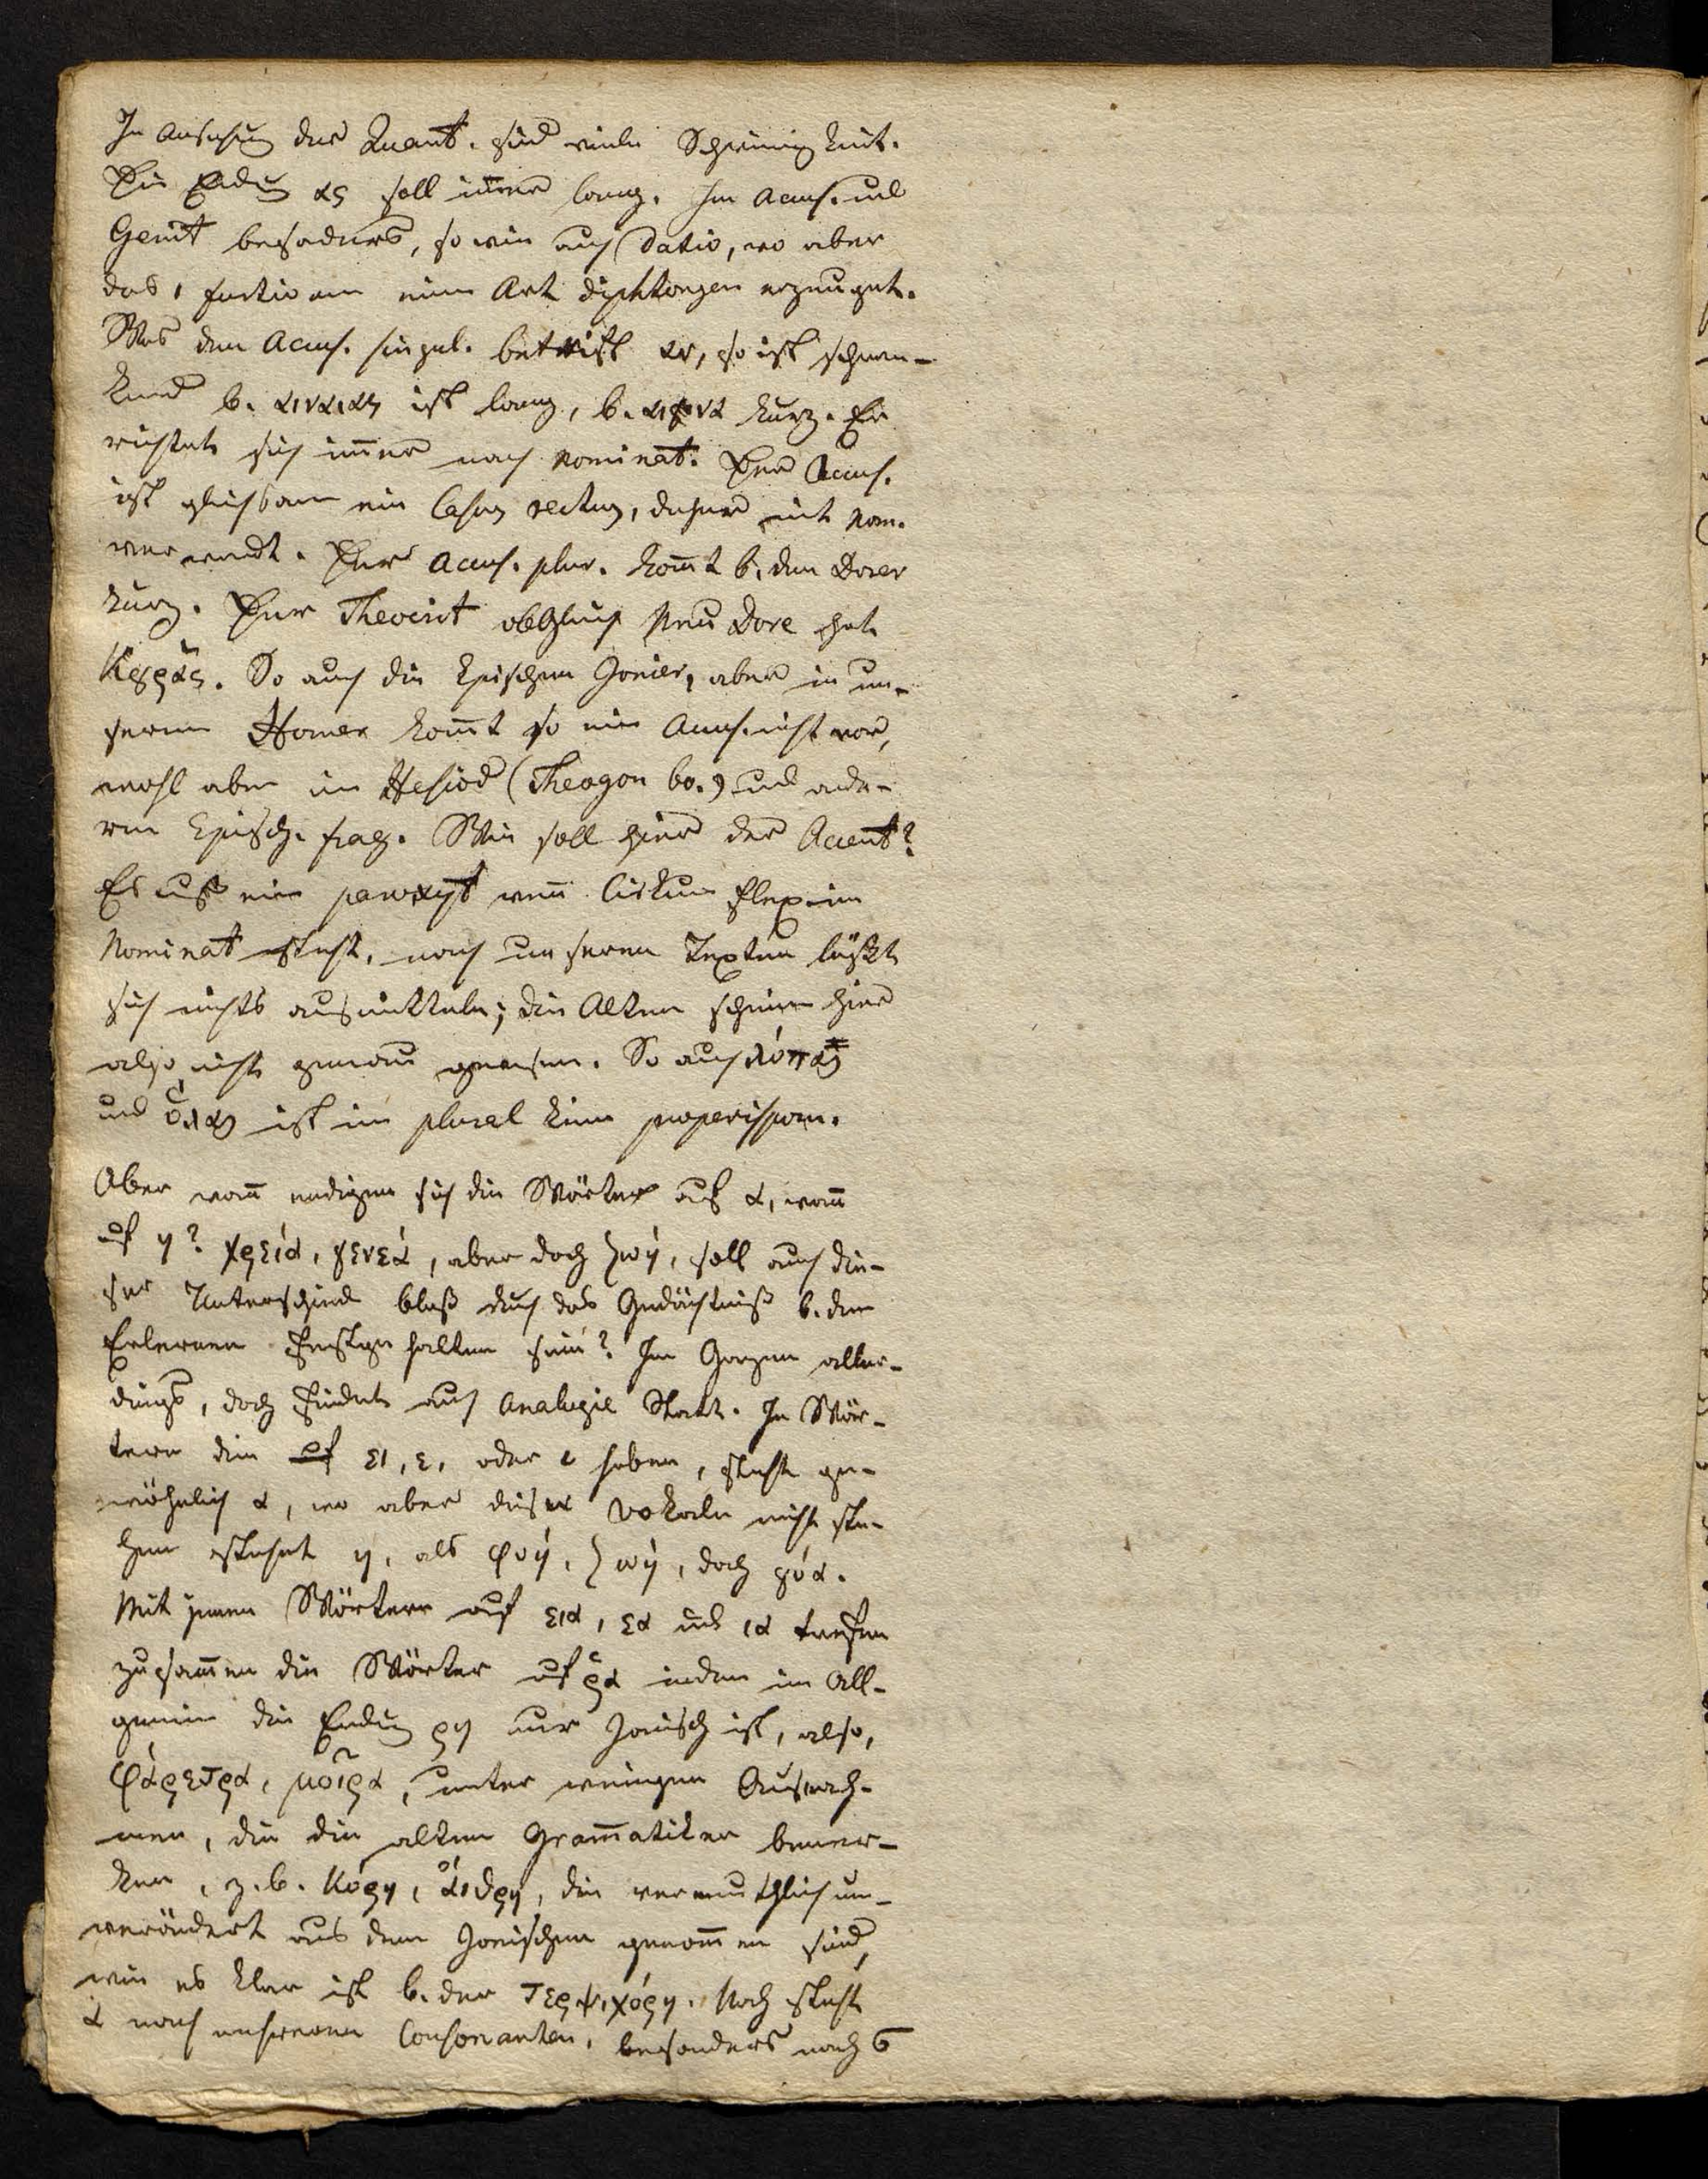 In Ansehung der Quant. sind viele Schwierigkeit.
Die Endung ας soll immer lang. Im Accus. und
Genit besonders, so wie auch Dativ, wo aber
das ι furtivum eine Art diphtongen erzeuget.
Was den Accus. singul. betrift αν, so ist schwan-
kend b. ist lang, b. kurz. Er
richtet sich immer nach Nominat. Der Accus.
ist gleichsam ein Casus rectus, daher mit Nom.
verwandt. Der Accus. plur. kommt b. den Dorer
kurz. Der Theocrit obgleich Neu Dore hat
So auch die Epischen Jonier, aber in un-
serem Homer kommt so ein Accus. nicht vor,
wohl aber im Hesiod (Theogon 60.) und ande-
ren Episch. frag. Wie soll hier der Accent?
Es muß ein paroxyt wenn Cirkumflex im
Nominat steht, nach unseren Texten läßt
sich nichts ausmitteln; die Alten scheinen hier
also nicht genau gewesen. So auch
und ist im plural kein properispom.
Aber wann endigen sich die Wörter auf α, wann
auf η? χρεία, γενεά, aber doch ζωή, soll auch die-
ser Unterschied bloß durch das Gedächtniß b. dem
Erlernen festgehalten sein? Im Ganzen aller-
dings, doch findet auch Analogie Statt. In Wör-
tern die ει, ε, oder ι haben, steht ge-
wöhnlich α, wo aber diese Vokale nicht ste-
hen stehet η, als φυή, ζωή, doch ῥόα.
Mit jenen Wörtern auf εια, εα und ια treffen
zusammen die Wörter auf ρα indem im All-
gemein die Endung ρη nur Jonisch ist, also,
φάρετρα, μοῖρα, unter wenigen Ausnah-
men, die die alten Grammatiker bemer-
ken, z.b. κόρη, die vermuthlich un-
verändert aus dem Jonischen genommen sind,
wie es klar ist b. der Τερψιχόρη. Noch steht
α nach mehreren Consonanten, besonders nach σ